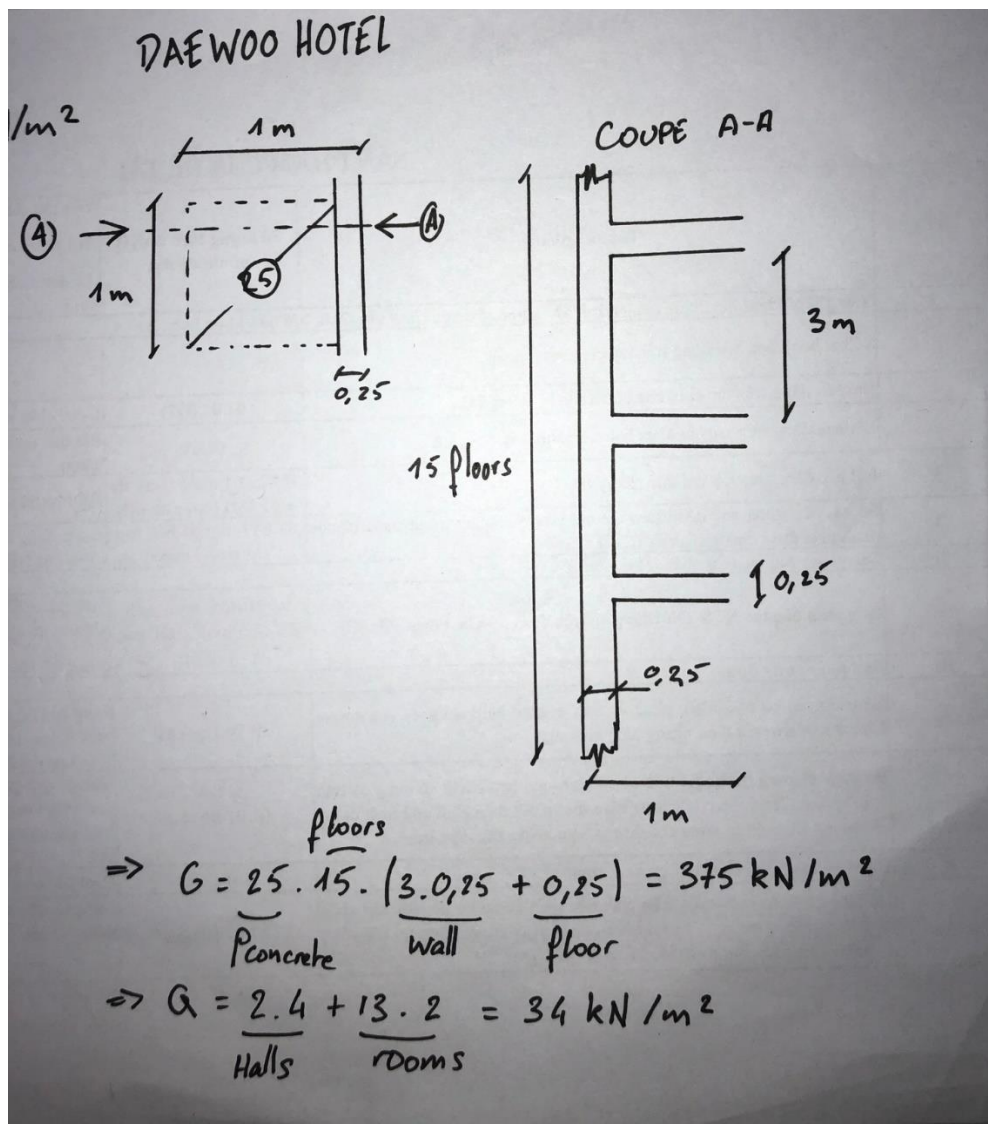 DAEWOO HOTEL
/m²
1m
COUPE A-A
4
A
1m
25
0,25
3m
15 floors
0,25
0,25
1m
floors
=> G = 25 . 15 . (3.0,25 + 0,25) = 375 kN/m²
ρconcrete wall floor
=> Q = 2.4 + 13.2 = 34 kN/m²
Halls rooms